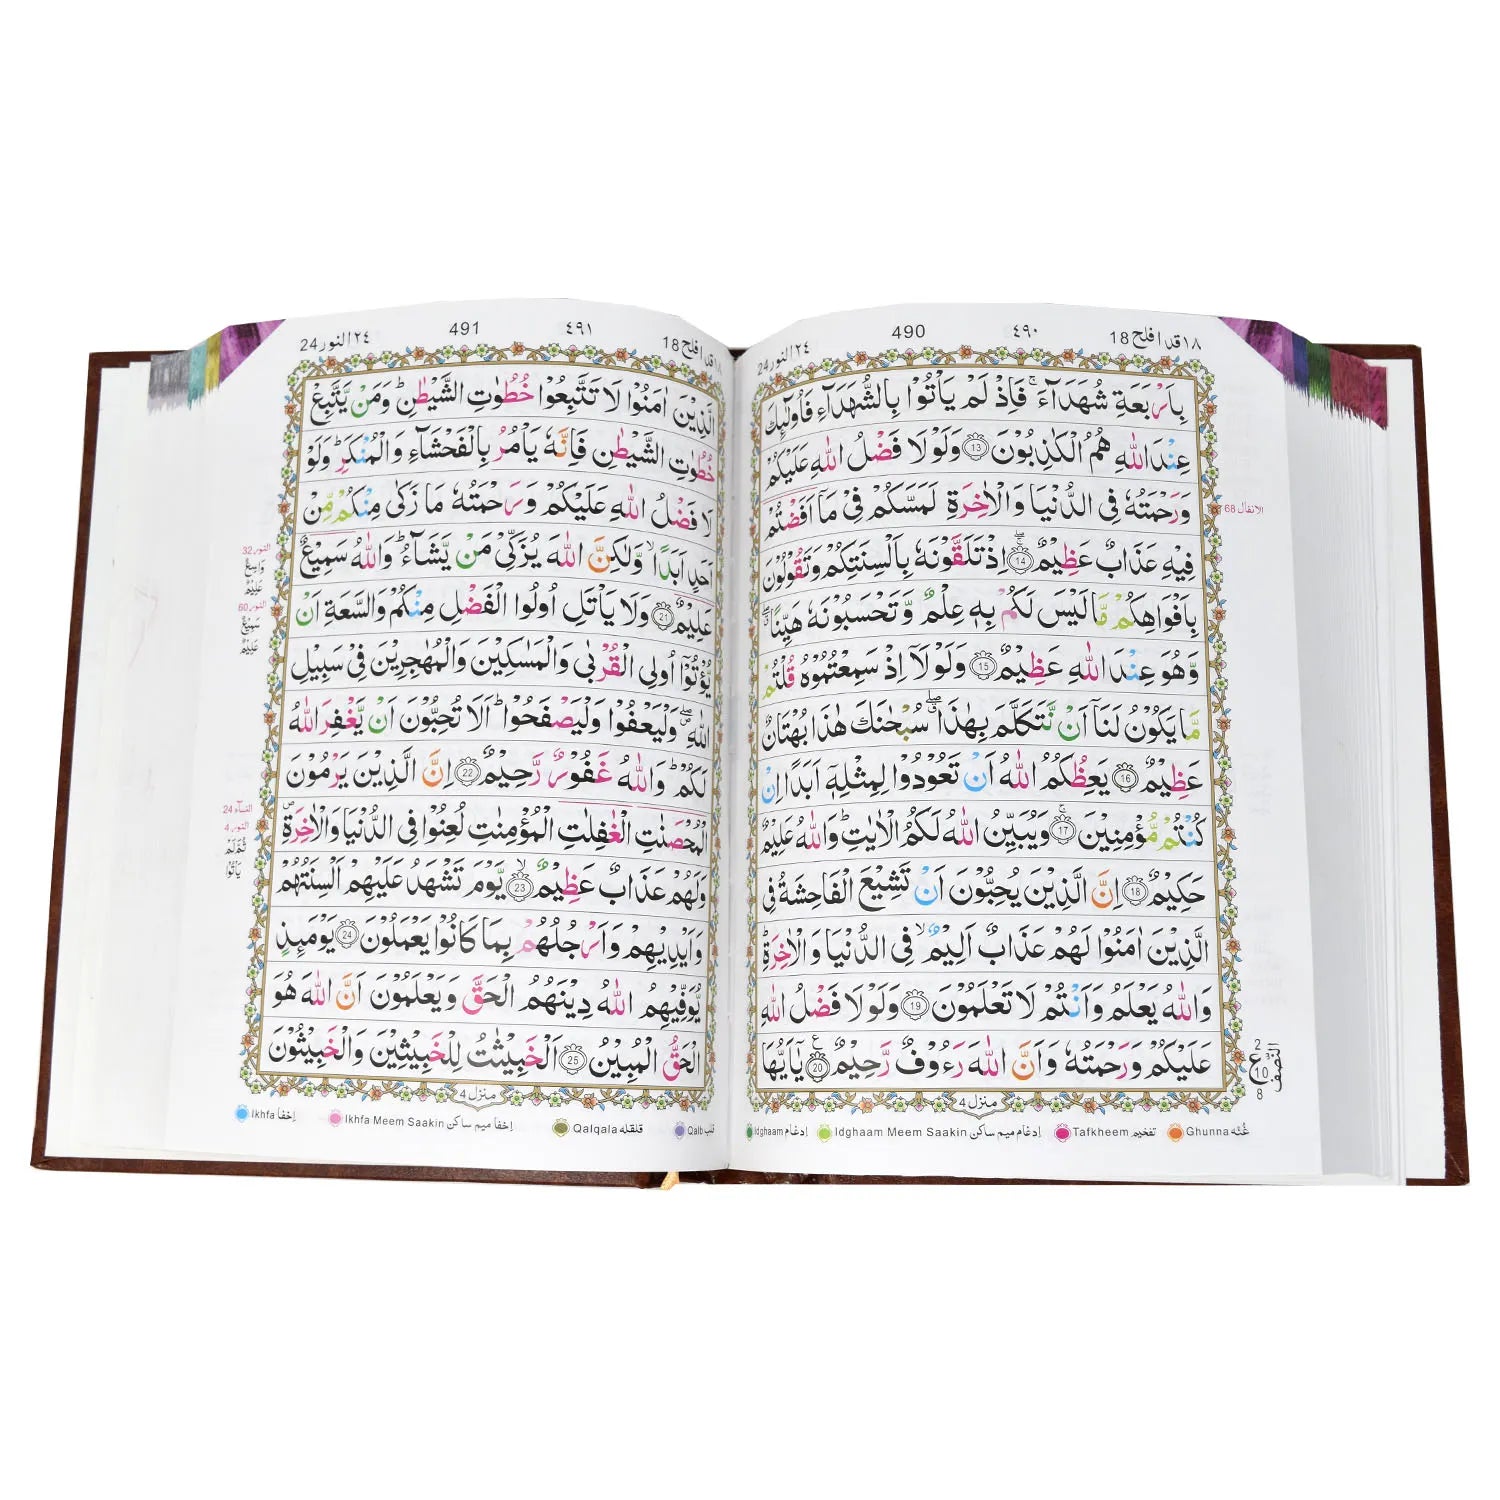 ١٨ قد افلح 18
٤٩٠
490
٢٤ النور 24
بِاَرْبَعَةِ شُهَدَآءَ ۚ فَاِذْ لَمْ يَاْتُوْا بِالشُّهَدَآءِ فَاُولٰٓئِكَ
عِنْدَ اللّٰهِ هُمُ الْكٰذِبُوْنَ 13 وَلَوْ لَا فَضْلُ اللّٰهِ عَلَيْكُمْ
وَرَحْمَتُهٗ فِى الدُّنْيَا وَالْاٰخِرَةِ لَمَسَّكُمْ فِىْ مَاۤ اَفَضْتُمْ
فِيْهِ عَذَابٌ عَظِيْمٌ 14 ۚ اِذْ تَلَقَّوْنَهٗ بِاَلْسِنَتِكُمْ وَتَقُوْلُوْنَ
بِاَفْوَاهِكُمْ مَّا لَيْسَ لَكُمْ بِهٖ عِلْمٌ وَّتَحْسَبُوْنَهٗ هَيِّنًا ۖ
وَّهُوَ عِنْدَ اللّٰهِ عَظِيْمٌ 15 وَلَوْ لَاۤ اِذْ سَمِعْتُمُوْهُ قُلْتُمْ
مَّا يَكُوْنُ لَنَاۤ اَنْ نَّتَكَلَّمَ بِهٰذَا ۖ سُبْحٰنَكَ هٰذَا بُهْتَانٌ
عَظِيْمٌ 16 يَعِظُكُمُ اللّٰهُ اَنْ تَعُوْدُوْا لِمِثْلِهٖۤ اَبَدًا اِنْ
كُنْتُمْ مُّؤْمِنِيْنَ 17 ۚ وَيُبَيِّنُ اللّٰهُ لَكُمُ الْاٰيٰتِ ؕ وَاللّٰهُ عَلِيْمٌ
حَكِيْمٌ 18 اِنَّ الَّذِيْنَ يُحِبُّوْنَ اَنْ تَشِيْعَ الْفَاحِشَةُ فِى
الَّذِيْنَ اٰمَنُوْا لَهُمْ عَذَابٌ اَلِيْمٌ ۙ فِى الدُّنْيَا وَالْاٰخِرَةِ ؕ
وَاللّٰهُ يَعْلَمُ وَاَنْتُمْ لَا تَعْلَمُوْنَ 19 وَلَوْ لَا فَضْلُ اللّٰهِ
عَلَيْكُمْ وَرَحْمَتُهٗ وَاَنَّ اللّٰهَ رَءُوْفٌ رَّحِيْمٌ 20 يٰۤاَيُّهَا
الانفال 68
2
ع
10
8
النصف
منزل 4
Idghaam ادغام
Idghaam Meem Saakin ادغام میم ساکن
Tafkheem تفخیم
Ghunna غُنّه
18 قد افلح ١٨
٤٩١
491
٢٤ النور 24
الَّذِيْنَ اٰمَنُوْا لَا تَتَّبِعُوْا خُطُوٰتِ الشَّيْطٰنِ ؕ وَمَنْ يَّتَّبِعْ
خُطُوٰتِ الشَّيْطٰنِ فَاِنَّهٗ يَاْمُرُ بِالْفَحْشَآءِ وَالْمُنْكَرِ ؕ وَلَوْ
لَا فَضْلُ اللّٰهِ عَلَيْكُمْ وَرَحْمَتُهٗ مَا زَكٰى مِنْكُمْ مِّنْ
اَحَدٍ اَبَدًا ۙ وَّلٰكِنَّ اللّٰهَ يُزَكِّىْ مَنْ يَّشَآءُ ؕ وَاللّٰهُ سَمِيْعٌ
عَلِيْمٌ 21 وَلَا يَاْتَلِ اُولُوا الْفَضْلِ مِنْكُمْ وَالسَّعَةِ اَنْ
يُّؤْتُوْۤا اُولِى الْقُرْبٰى وَالْمَسٰكِيْنَ وَالْمُهٰجِرِيْنَ فِىْ سَبِيْلِ
اللّٰهِ ۖ وَلْيَعْفُوْا وَلْيَصْفَحُوْا ؕ اَلَا تُحِبُّوْنَ اَنْ يَّغْفِرَ اللّٰهُ
لَكُمْ ؕ وَاللّٰهُ غَفُوْرٌ رَّحِيْمٌ 22 اِنَّ الَّذِيْنَ يَرْمُوْنَ
الْمُحْصَنٰتِ الْغٰفِلٰتِ الْمُؤْمِنٰتِ لُعِنُوْا فِى الدُّنْيَا وَالْاٰخِرَةِ ۪
وَلَهُمْ عَذَابٌ عَظِيْمٌ 23 ۙ يَّوْمَ تَشْهَدُ عَلَيْهِمْ اَلْسِنَتُهُمْ
وَاَيْدِيْهِمْ وَاَرْجُلُهُمْ بِمَا كَانُوْا يَعْمَلُوْنَ 24 يَوْمَئِذٍ
يُّوَفِّيْهِمُ اللّٰهُ دِيْنَهُمُ الْحَقَّ وَيَعْلَمُوْنَ اَنَّ اللّٰهَ هُوَ
الْحَقُّ الْمُبِيْنُ 25 اَلْخَبِيْثٰتُ لِلْخَبِيْثِيْنَ وَالْخَبِيْثُوْنَ
النور 32
وَاسِعٌ
عَلِيْمٌ
النور 60
سَمِيْعٌ
عَلِيْمٌ
النساء 24
النور 4
ثُمَّ لَمْ
يَاْتُوْا
منزل 4
Ikhfa اِخفا
Ikhfa Meem Saakin اِخفا میم ساکن
Qalqala قلقله
Qalb قلب